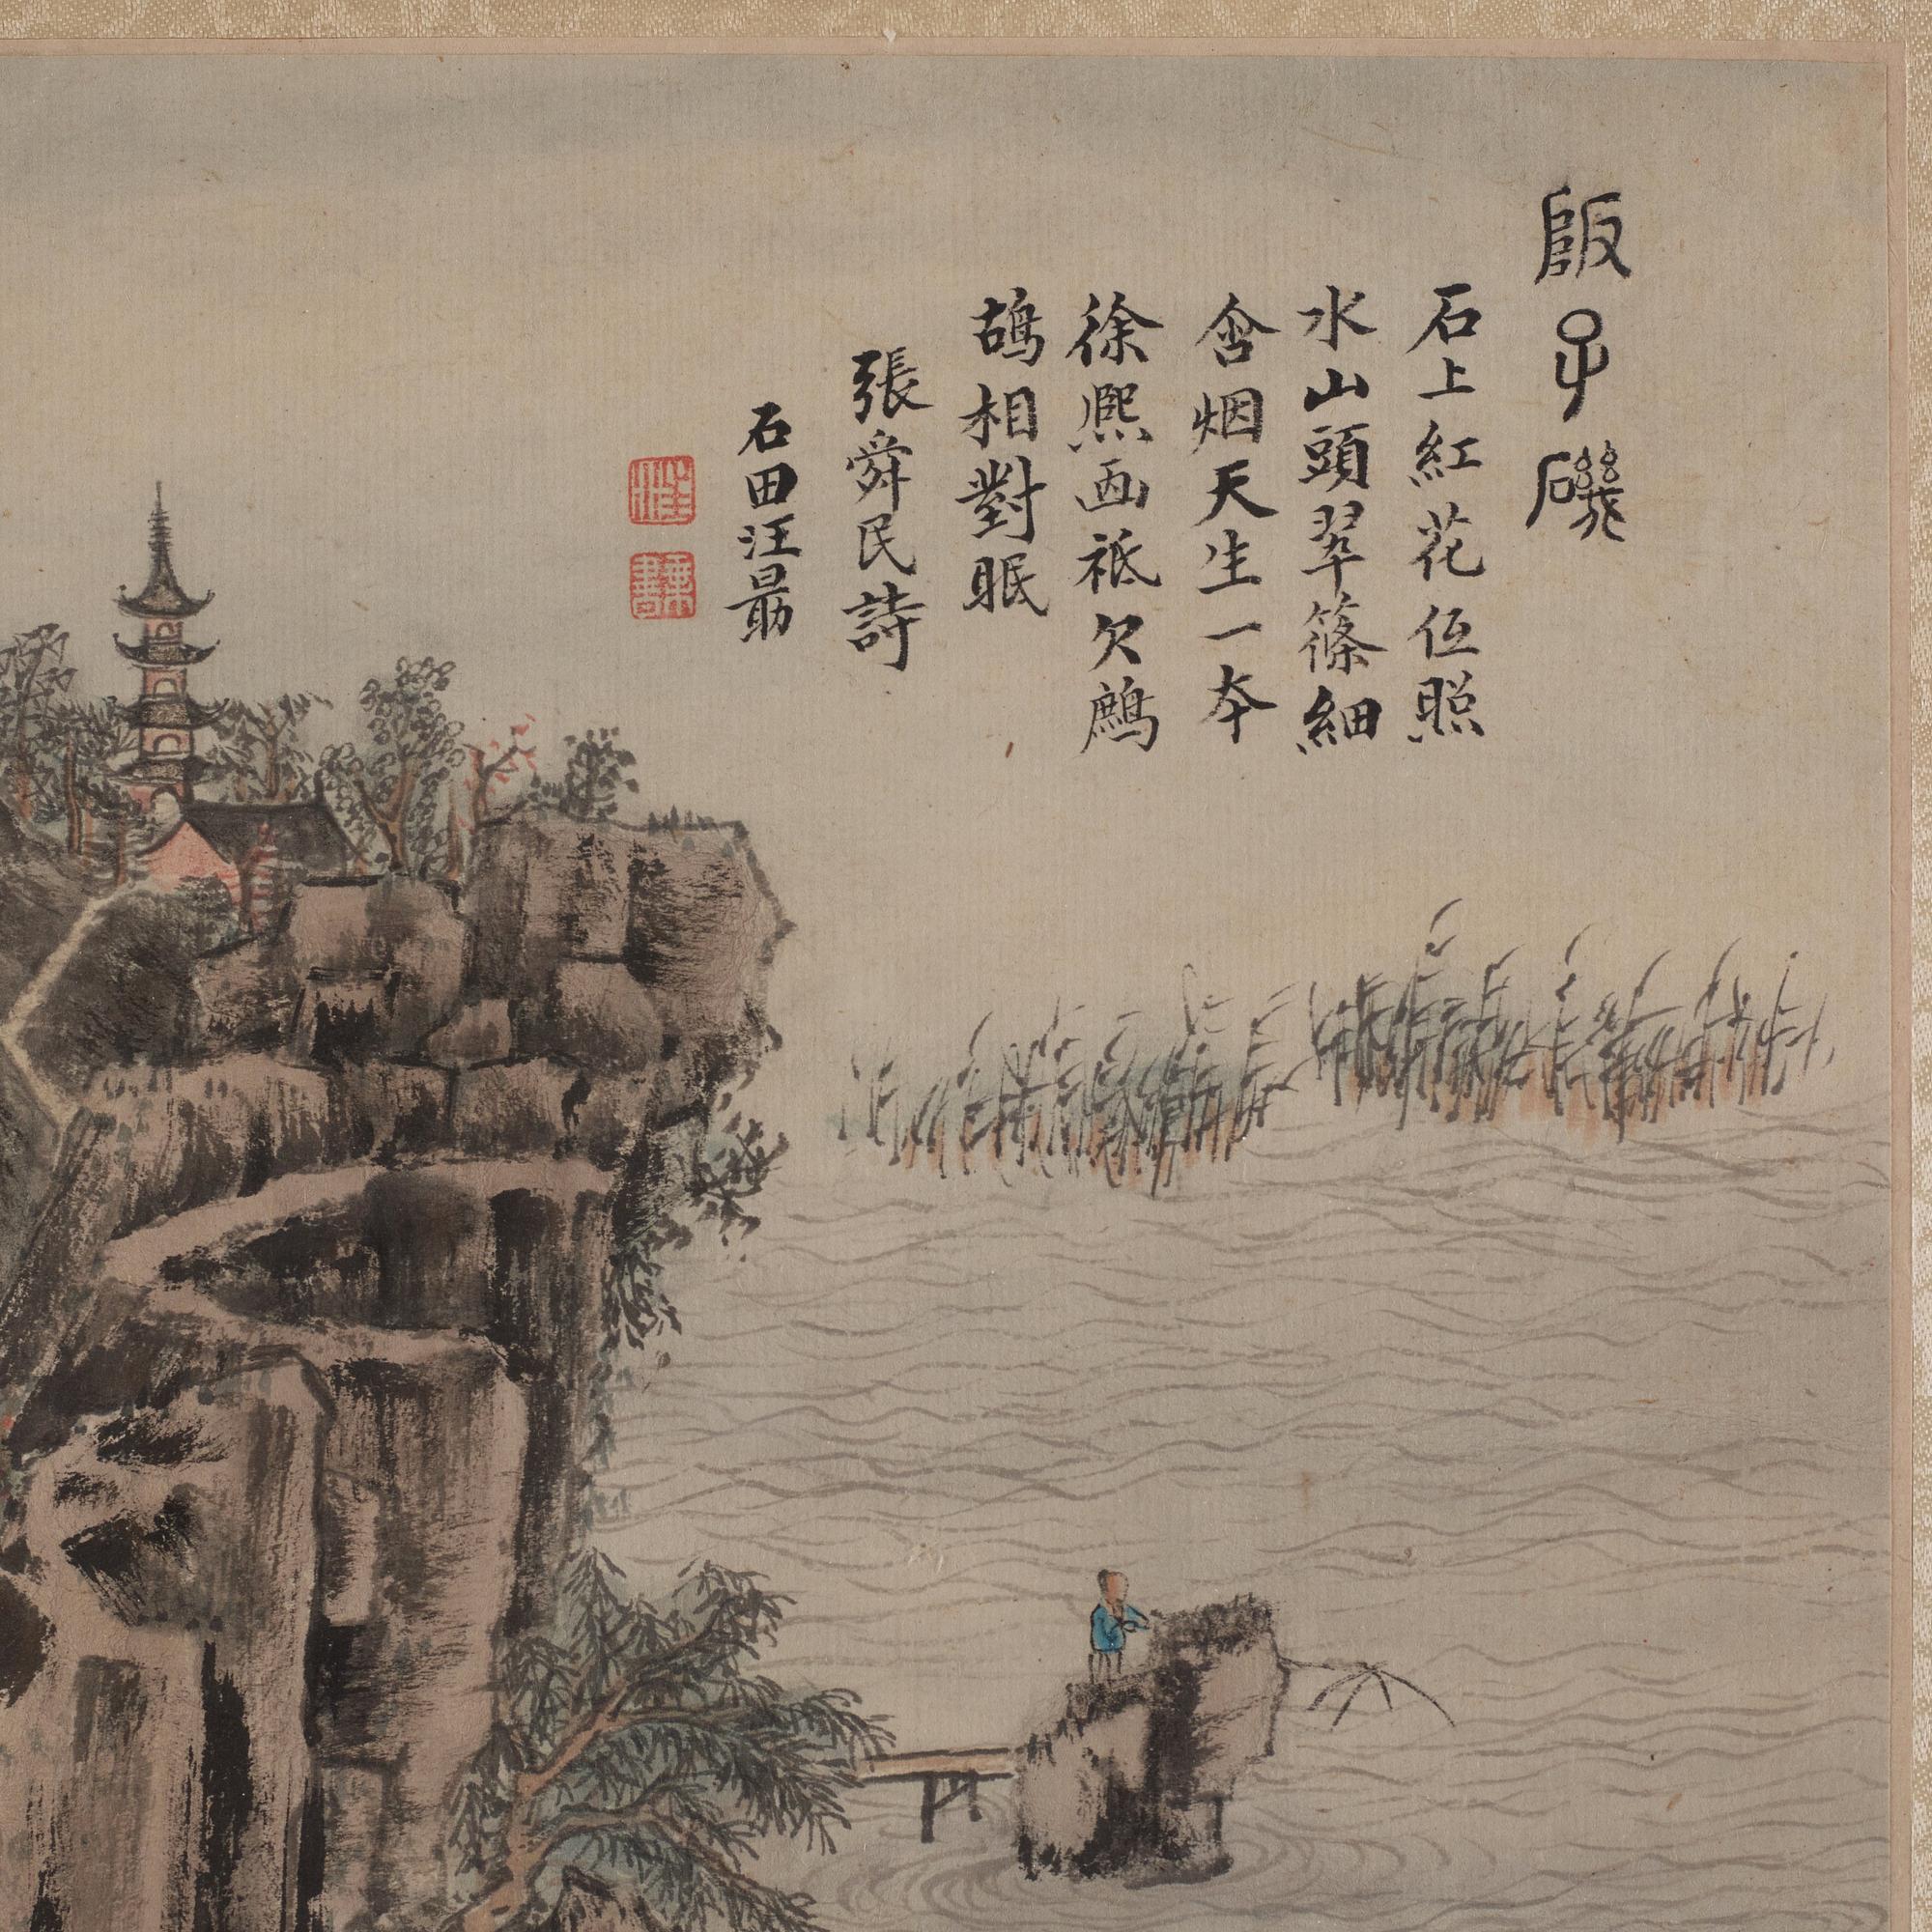 阪子磯
石上紅花低照
水山頭翠篠細
含烟天生一本
徐熙画祗欠鷓
鴣相對眠
張舜民詩
石田汪勗
汪